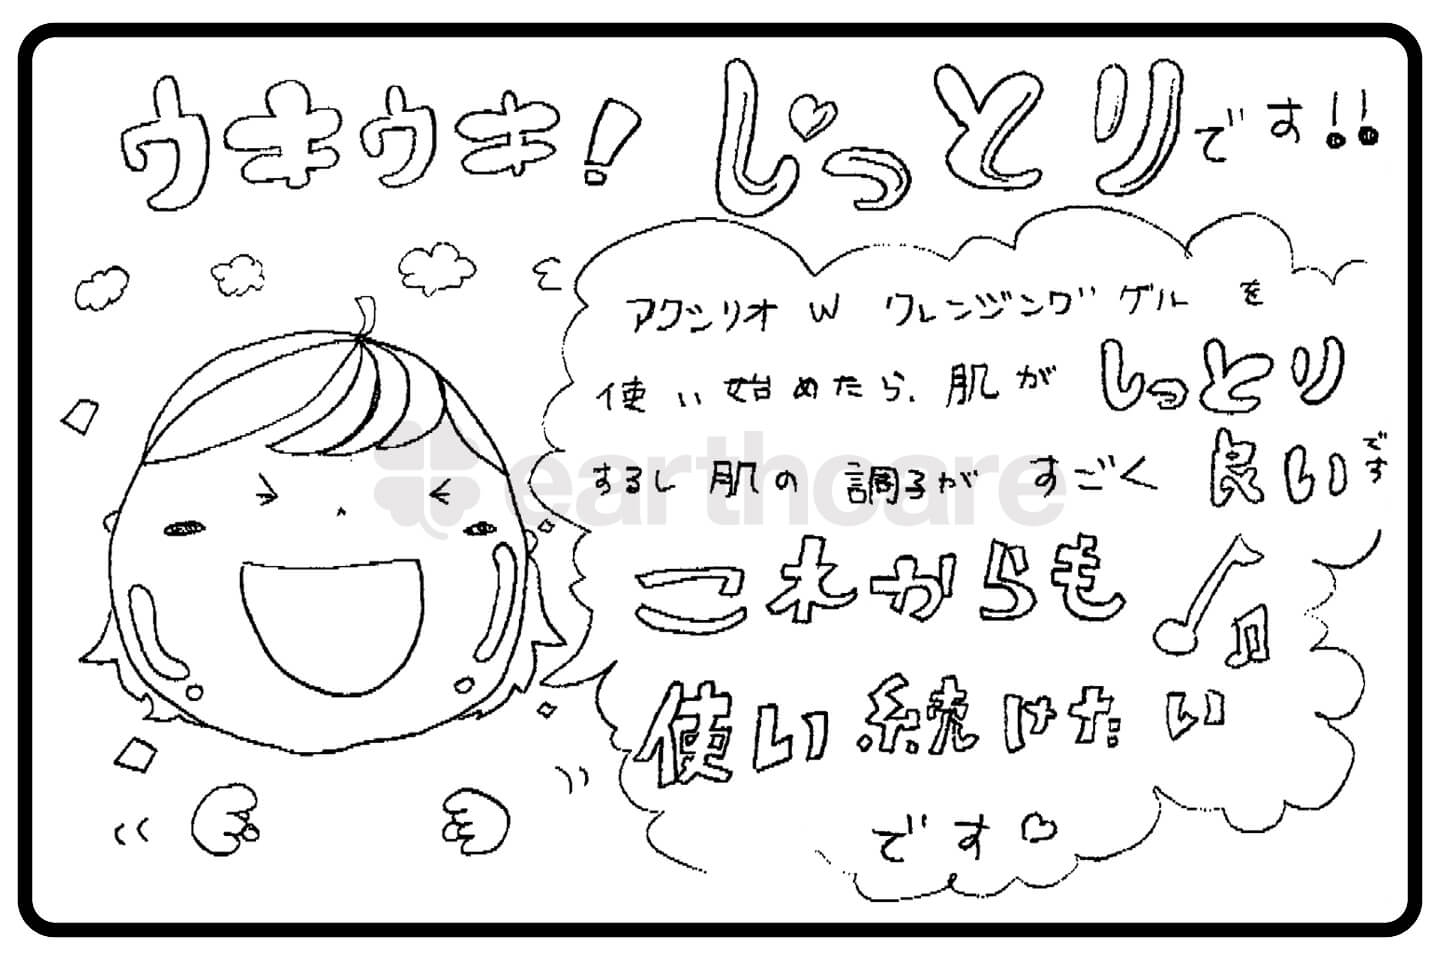 ウキウキ! しっとりです!!
アクシリオ W クレンジングゲルを
使い始めたら、肌がしっとり
するし 肌の調子が すごく良いです
これからも
使い続けたい
です♡
earthcare